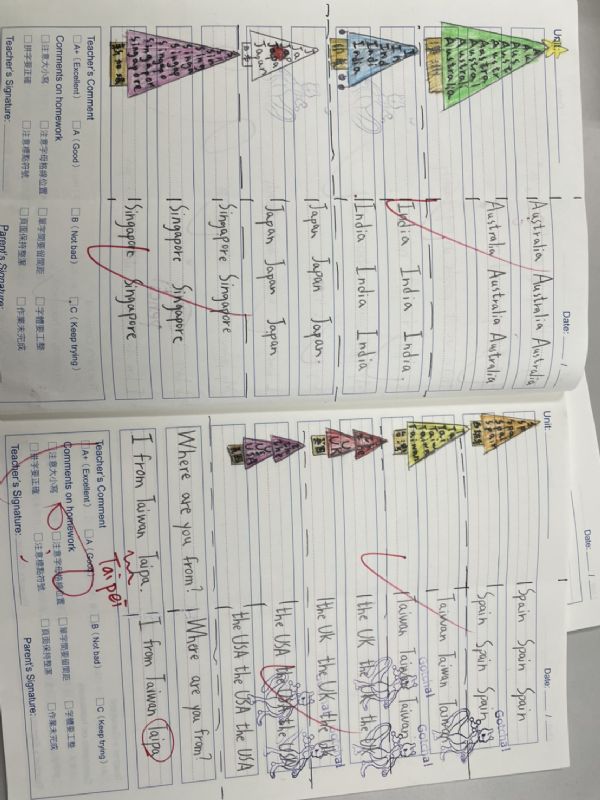 Unit:
Date: /
Australia Australia Australia
Australia Australia
India India India.
India India India
Japan Japan Japan.
Japan Japan Japan
Singapore Singapore
Singapore Singapore
Singapore Singapore
Teacher's Comment
□ A+ (Excellent) □ A (Good) □ B (Not bad) □ C (Keep trying)
Comments on homework
□ 注意大小寫 □ 注意字母格線位置 □ 單字間要留間距 □ 字體要工整
□ 拼字要正確 □ 注意標點符號 □ 頁面保持整潔 □ 作業未完成
Teacher's Signature: Parent's Signature:
Unit:
Date: /
Spain Spain Spain
Spain Spain Spain
Taiwan Taiwan Taiwan
Taiwan Taiwan Taiwan
the UK the UK the UK
the UK the UK the UK
the USA the USA the USA
the USA the USA the USA
Where are you from? Where are you from?
I from Taiwan Taipa. I from Taiwan Taipa
Taipei
Teacher's Comment
□ A+ (Excellent) □ A (Good) □ B (Not bad) □ C (Keep trying)
Comments on homework
□ 注意大小寫 □ 注意字母格線位置 □ 單字間要留間距 □ 字體要工整
□ 拼字要正確 □ 注意標點符號 □ 頁面保持整潔 □ 作業未完成
Teacher's Signature: Parent's Signature:
Date: /